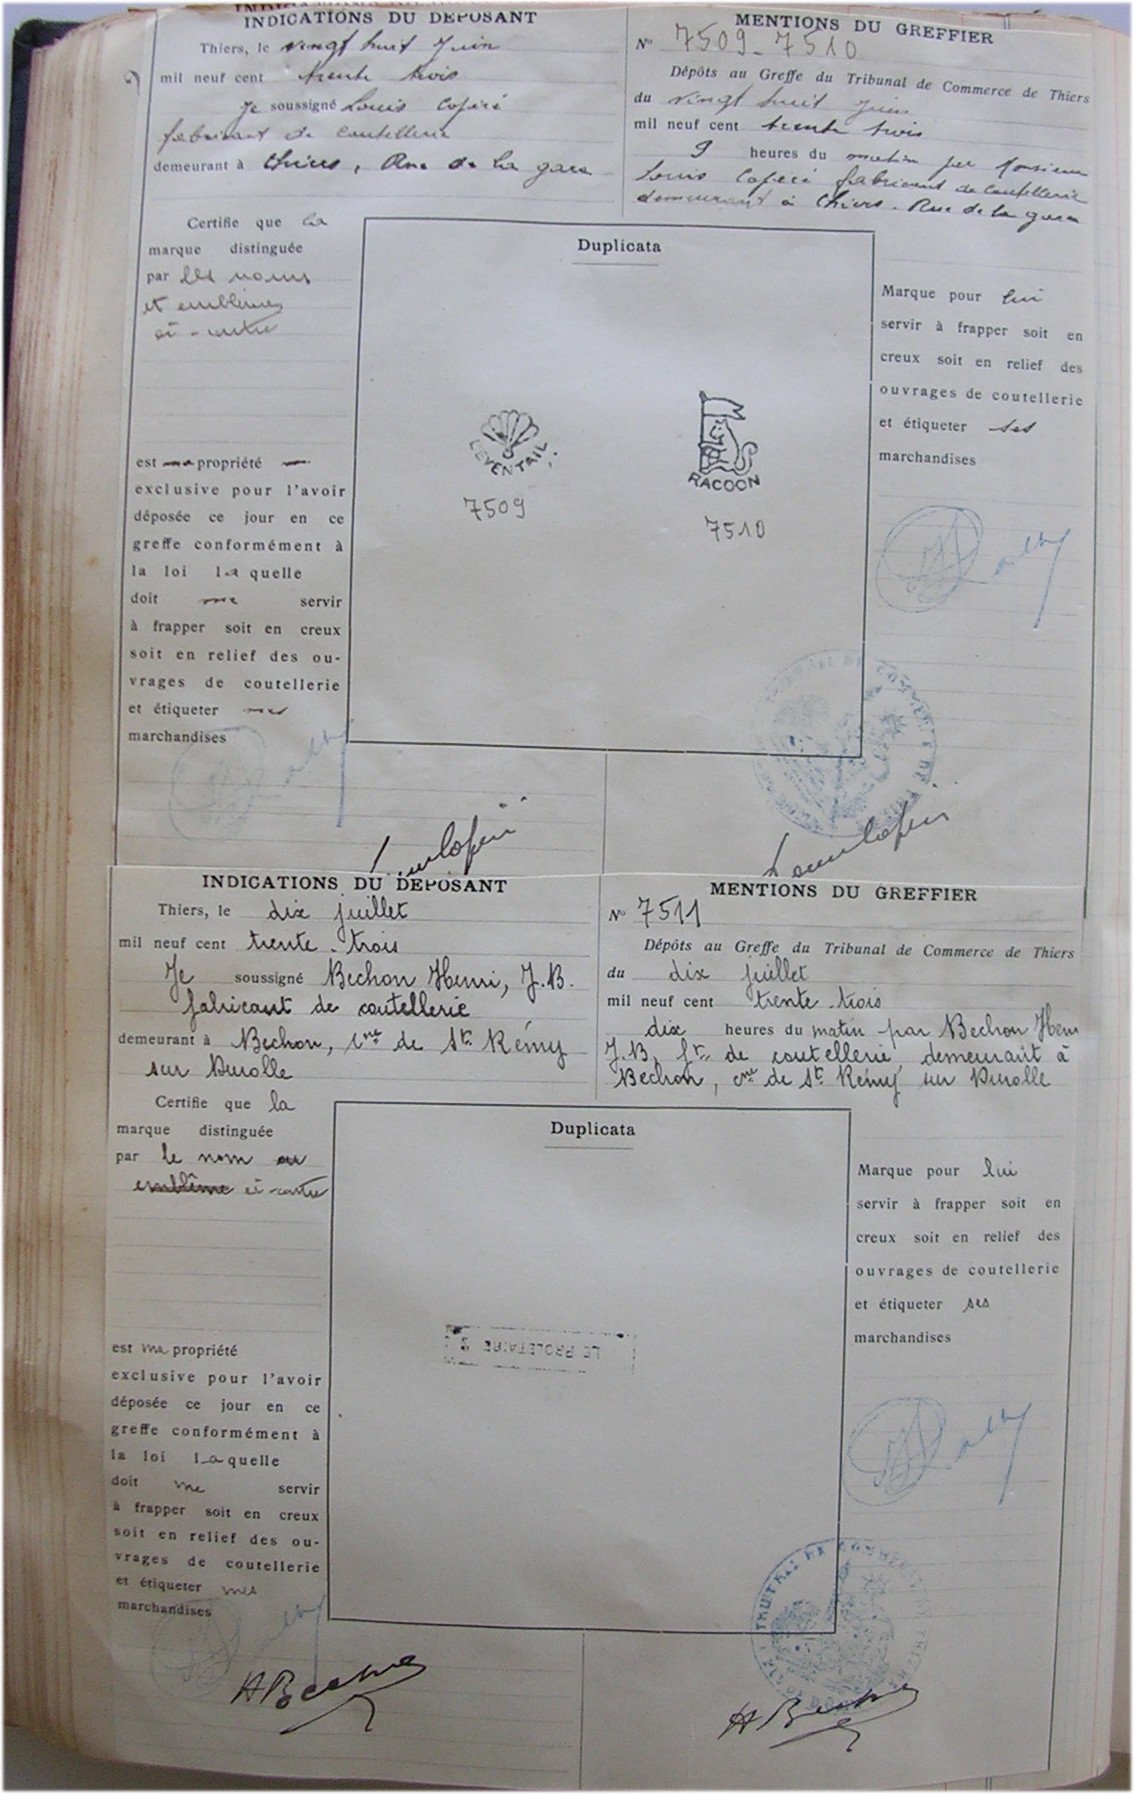 INDICATIONS DU DEPOSANT
Thiers, le vingt huit Juin
mil neuf cent trente trois
Je soussigné Louis Copéré
fabricant de coutellerie
demeurant à Thiers, Rue de la gare
Certifie que la
marque distinguée
par les noms
et emblèmes
ci-contre
est ma propriété
exclusive pour l'avoir
déposée ce jour en ce
greffe conformément à
la loi laquelle
doit me servir
à frapper soit en creux
soit en relief des ou-
vrages de coutellerie
et étiqueter mes
marchandises
MENTIONS DU GREFFIER
No 7509-7510
Dépôts au Greffe du Tribunal de Commerce de Thiers
du vingt huit juin
mil neuf cent trente trois
9 heures du matin par Monsieur
Louis Copéré fabricant de coutellerie
demeurant à Thiers. Rue de la gare
Duplicata
L'EVENTAIL
7509
RACOON
7510
Marque pour lui
servir à frapper soit en
creux soit en relief des
ouvrages de coutellerie
et étiqueter ses
marchandises
INDICATIONS DU DEPOSANT
Thiers, le dix juillet
mil neuf cent trente-trois
Je soussigné Bechon Henri, J.B.
fabricant de coutellerie
demeurant à Bechon, cne de St. Rémy
sur Durolle
Certifie que la
marque distinguée
par le nom ou
emblême ci-contre
est ma propriété
exclusive pour l'avoir
déposée ce jour en ce
greffe conformément à
la loi laquelle
doit me servir
à frapper soit en creux
soit en relief des ou-
vrages de coutellerie
et étiqueter mes
marchandises
MENTIONS DU GREFFIER
No 7511
Dépôts au Greffe du Tribunal de Commerce de Thiers
du dix juillet
mil neuf cent trente-trois
dix heures du matin par Bechon Henri
J.B. ft. de coutellerie demeurant à
Bechon, cne de St. Rémy sur Durolle
Duplicata
LE PROLETAIRE
Marque pour lui
servir à frapper soit en
creux soit en relief des
ouvrages de coutellerie
et étiqueter ses
marchandises
TRIBUNAL DE COMMERCE DE THIERS
HBechon
HBechon